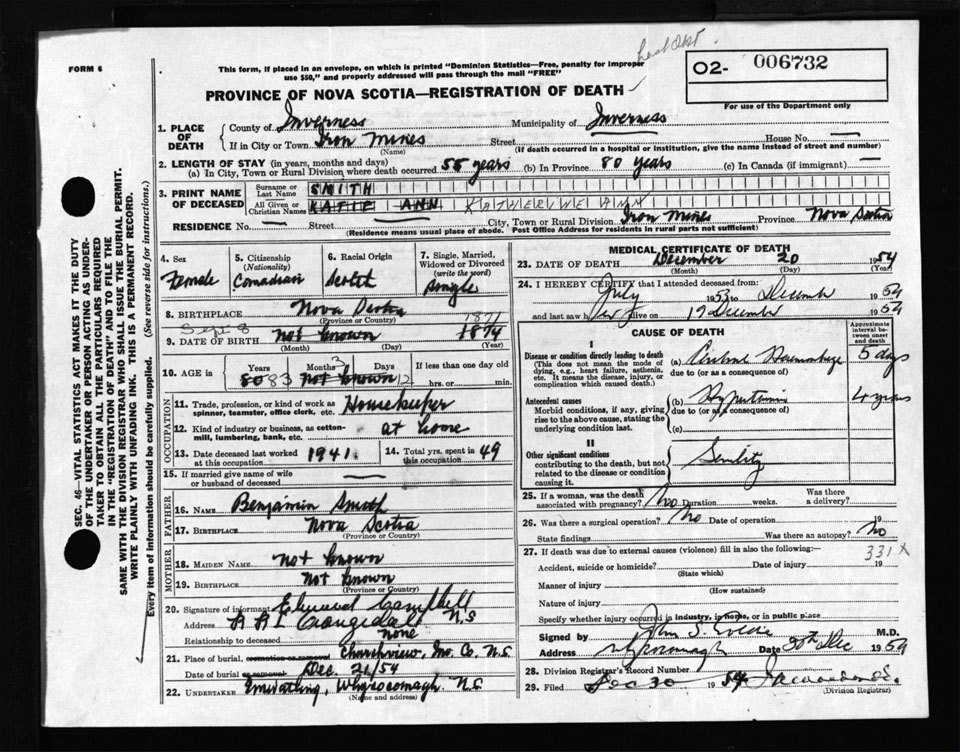 FORM 6
This form, if placed in an envelope, on which is printed "Dominion Statistics—Free, penalty for improper
use $50," and properly addressed will pass through the mail "FREE"
PROVINCE OF NOVA SCOTIA—REGISTRATION OF DEATH
02- 006732
For use of the Department only
1. PLACE OF DEATH
County of Inverness Municipality of Inverness
If in City or Town Iron Mines Street House No. —
(Name) (If death occurred in a hospital or institution, give the name instead of street and number)
2. LENGTH OF STAY (in years, months and days)
(a) In City, Town or Rural Division where death occurred 55 years (b) In Province 80 years (c) In Canada (if immigrant) —
3. PRINT NAME OF DECEASED
Surname or Last Name SMITH
All Given or Christian Names KATIE ANN KATHERINE ANN
RESIDENCE No. — Street — City, Town or Rural Division Iron Mines Province Nova Scotia
(Residence means usual place of abode. Post Office Address for residents in rural parts not sufficient)
SEC. 46—VITAL STATISTICS ACT MAKES IT THE DUTY
OF THE UNDERTAKER OR PERSON ACTING AS UNDER-
TAKER TO OBTAIN ALL THE PARTICULARS REQUIRED
IN THE "REGISTRATION OF DEATH" AND TO FILE THE
SAME WITH THE DIVISION REGISTRAR WHO SHALL ISSUE THE BURIAL PERMIT.
WRITE PLAINLY WITH UNFADING INK. THIS IS A PERMANENT RECORD.
Every item of information should be carefully supplied. (See reverse side for instructions.)
4. Sex Female
5. Citizenship (Nationality) Canadian
6. Racial Origin Scotch
7. Single, Married, Widowed or Divorced (write the word) Single
8. BIRTHPLACE Nova Scotia
(Province or Country)
Sept 8 1871
9. DATE OF BIRTH Not known 1874
(Month) (Day) (Year)
10. AGE in Years 80 83 Months 3 Not known Days 12 If less than one day old
hrs. or min.
OCCUPATION
11. Trade, profession, or kind of work as spinner, teamster, office clerk, etc. Housekeeper
12. Kind of industry or business, as cotton-mill, lumbering, bank, etc. at home
13. Date deceased last worked at this occupation 1941
14. Total yrs. spent in this occupation 49
15. If married give name of wife or husband of deceased —
FATHER
16. Name Benjamin Smith
17. Birthplace Nova Scotia
(Province or Country)
MOTHER
18. Maiden Name Not known
19. Birthplace Not known
(Province or Country)
20. Signature of informant Elwood Campbell
Address R R 1 Orangedale N.S
Relationship to deceased none
21. Place of burial, cremation or removal Churchview, Inv. Co. N.S.
Date of burial or removal Dec. 21/54
22. UNDERTAKER Whycocomagh N.S
(Name and address)
MEDICAL CERTIFICATE OF DEATH
23. DATE OF DEATH December 20 1954
(Month) (Day) (Year)
24. I HEREBY CERTIFY that I attended deceased from:
July 1953 to December 1954
and last saw her alive on 17 December 1954
CAUSE OF DEATH
Approximate interval between onset and death
I
Disease or condition directly leading to death
(This does not mean the mode of dying, e.g., heart failure, asthenia, etc. It means the disease, injury, or complication which caused death.)
(a) Cerebral Haemorrhage 5 days
due to (or as a consequence of)
Antecedent causes
Morbid conditions, if any, giving rise to the above cause, stating the underlying condition last.
(b) Hypertension 4 years
due to (or as a consequence of)
(c)
II
Other significant conditions
contributing to the death, but not related to the disease or condition causing it.
Senility
25. If a woman, was the death associated with pregnancy? No Duration weeks. Was there a delivery?
26. Was there a surgical operation? No Date of operation 19
State findings Was there an autopsy? No
27. If death was due to external causes (violence) fill in also the following:— 331X
Accident, suicide or homicide? Date of injury 19
(State which)
Manner of injury
(How sustained)
Nature of injury
Specify whether injury occurred in industry, in home, or in public place
Signed by John S. M.D.
Address Whycocomagh Date 20th Dec 1954
28. Division Registrar's Record Number
29. Filed Dec 30 1954
(Division Registrar)